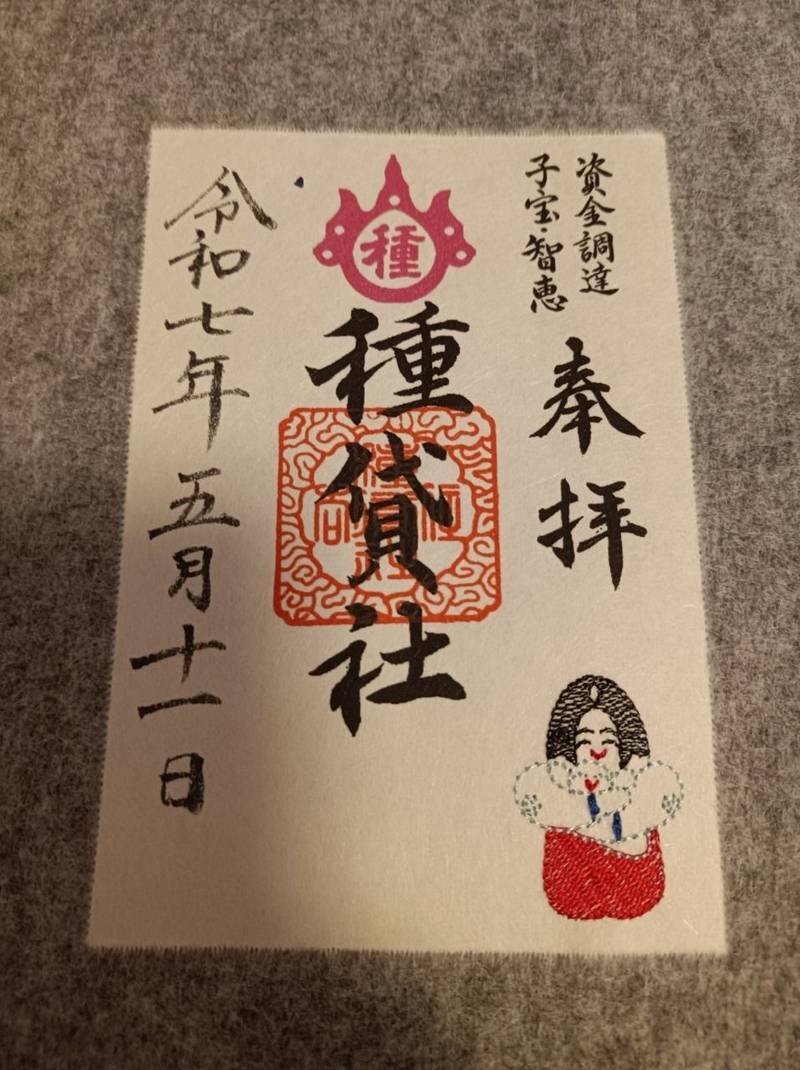 資金調達
子宝・智恵
奉拝
種
種貸社
令和七年五月十一日